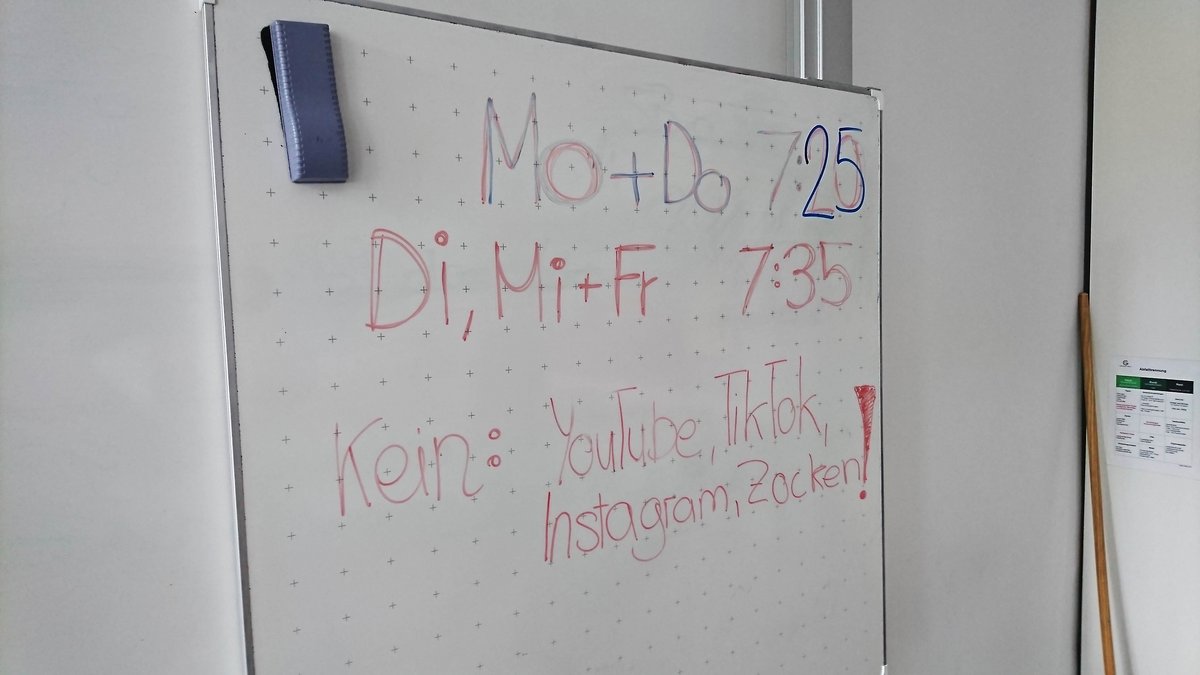 Mo+Do 7:25
Di, Mi+Fr 7:35
Kein: YouTube, TikTok,
Instagram, Zocken!
Abfalltrennung